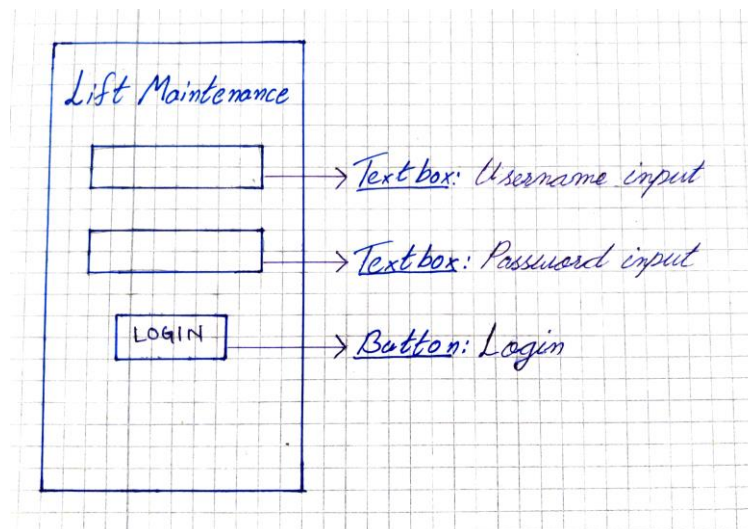 Lift Maintenance
Textbox: Username input
Textbox: Password input
LOGIN
Button: Login